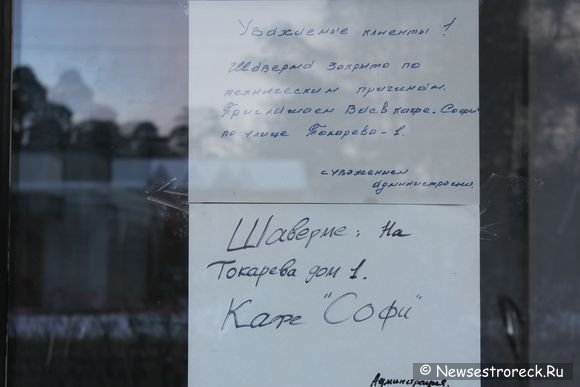 Уважаемые клиенты !
Шаверма закрыта по
техническим причинам.
Приглашаем Вас в кафе. Софи
по улице Токарева-1.
с уважением
администрация.
Шаверме: На
Токарева дом 1.
Кафе "Софи"
Администрация.
© Newsestroreck.Ru